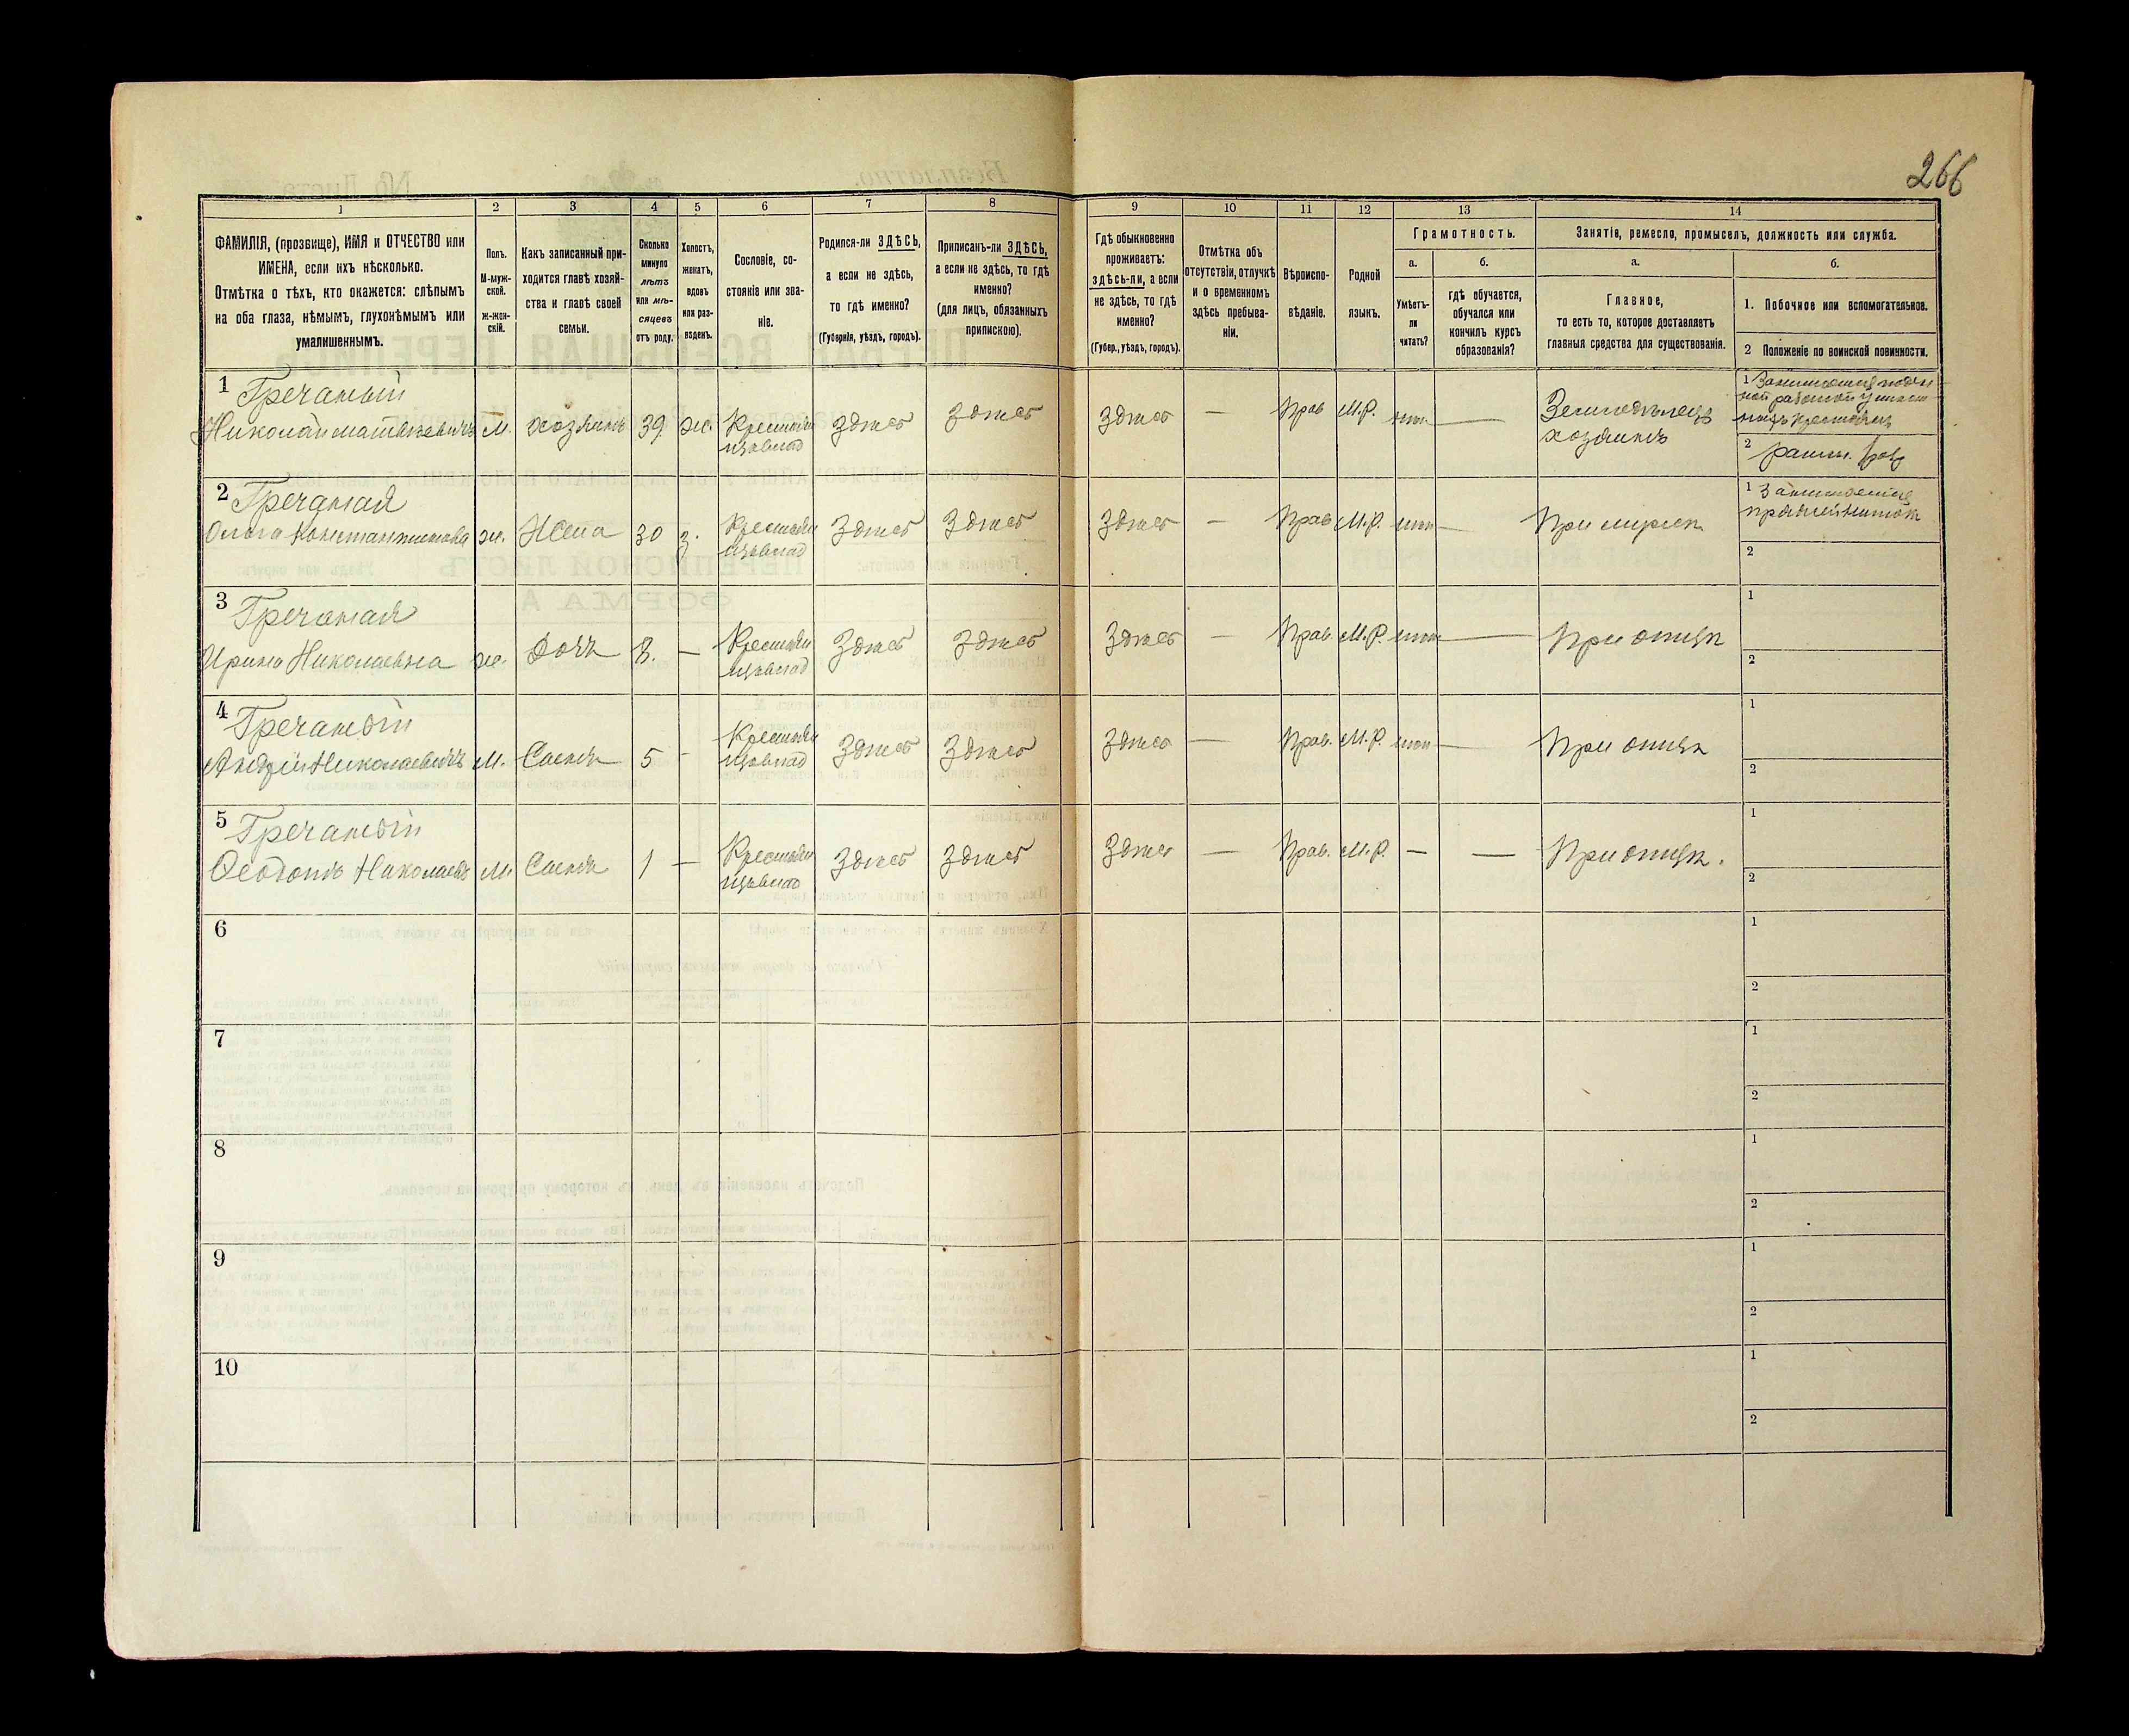 266
1 2 3 4 5 6 7 8 9 10 11 12 13 14
ФАМИЛІЯ, (прозвище), ИМЯ и ОТЧЕСТВО или
ИМЕНА, если ихъ нѣсколько.
Отмѣтка о тѣхъ, кто окажется: слѣпымъ
на оба глаза, нѣмымъ, глухонѣмымъ или
умалишеннымъ.
Полъ.
М-муж-
ской.
ж-жен-
скій.
Какъ записанный при-
ходится главѣ хозяй-
ства и главѣ своей
семьи.
Сколько
минуло
лѣтъ
или мѣ-
сяцевъ
отъ роду.
Холостъ,
женатъ,
вдовъ
или раз-
веденъ.
Сословіе, со-
стояніе или зва-
ніе.
Родился-ли ЗДѢСЬ,
а если не здѣсь,
то гдѣ именно?
(Губернія, уѣздъ, городъ).
Приписанъ-ли ЗДѢСЬ,
а если не здѣсь, то гдѣ
именно?
(для лицъ, обязанныхъ
припискою).
Гдѣ обыкновенно
проживаетъ:
здѣсь-ли, а если
не здѣсь, то гдѣ
именно?
(Губер., уѣздъ, городъ).
Отмѣтка объ
отсутствіи, отлучкѣ
и о временномъ
здѣсь пребыва-
ніи.
Вѣроиспо-
вѣданіе.
Родной
языкъ.
Грамотность.
а.
Умѣетъ-
ли
читать?
б.
гдѣ обучается,
обучался или
кончилъ курсъ
образованія?
Занятіе, ремесло, промыселъ, должность или служба.
а.
Главное,
то есть то, которое доставляетъ
главныя средства для существованія.
б.
1. Побочное или вспомогательное.
2 Положеніе по воинской повинности.
1 Гречаный
Николай Матвѣевичъ М. хозяинъ 39 ж. Крестьян здѣсь здѣсь здѣсь — Прав М.Р. —
Земледѣлецъ
хозяинъ
1
2
2 Гречаная
Ольга Константинова ж. Жена 30 з. Крестьян здѣсь здѣсь здѣсь — Прав М.Р. — При мужѣ
1
2
3 Гречаная
Ирина Николаевна ж. Дочь 8. — Крестьян здѣсь здѣсь здѣсь — Прав. М.Р. — При отцѣ
1
2
4 Гречаный
Андрій Николаевичъ М. Сынъ 5 — Крестьян здѣсь здѣсь здѣсь — Прав. М.Р. — При отцѣ
1
2
5 Гречаный
Николаевъ М. Сынъ 1 — Крестьян здѣсь здѣсь здѣсь — Прав. М.Р. — — При отцѣ.
1
2
6
1
2
7
1
2
8
1
2
9
1
2
10
1
2